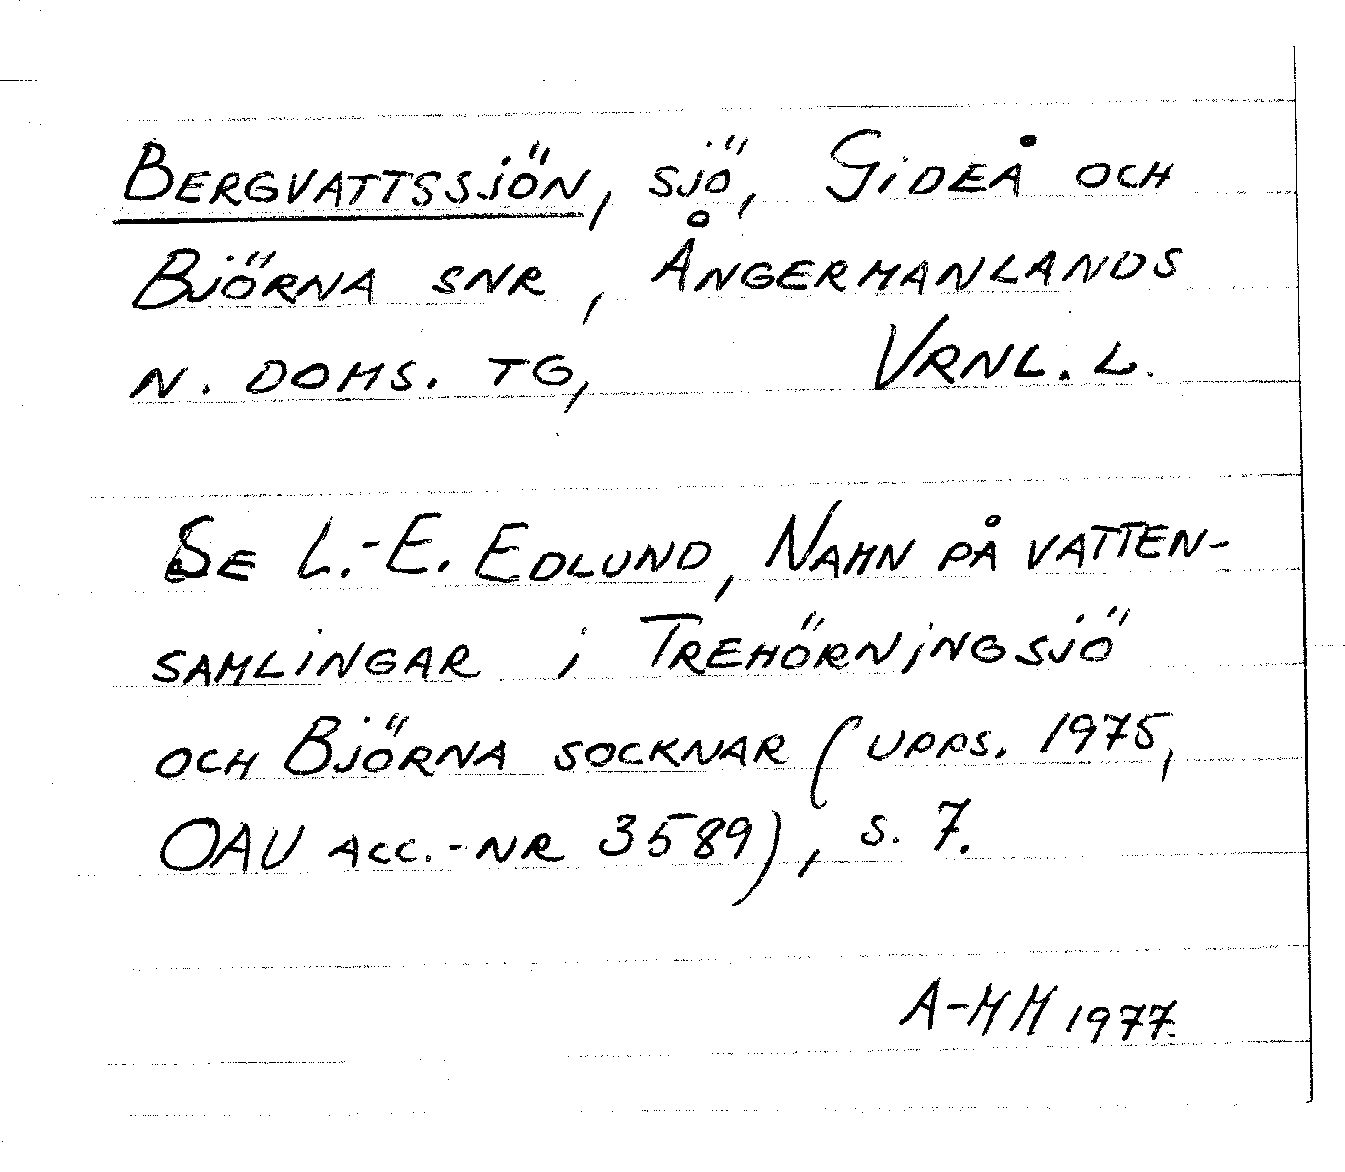 BERGVATTSSJÖN, SJÖ, GIDEÅ OCH
BJÖRNA SNR, ÅNGERMANLANDS
N. DOMS. TG, VRNL. L.
SE L.-E. EDLUND, NAMN PÅ VATTEN-
SAMLINGAR I TREHÖRNINGSJÖ
OCH BJÖRNA SOCKNAR (UPPS. 1975,
OAU ACC.-NR 3589), S. 7.
A-MM 1977